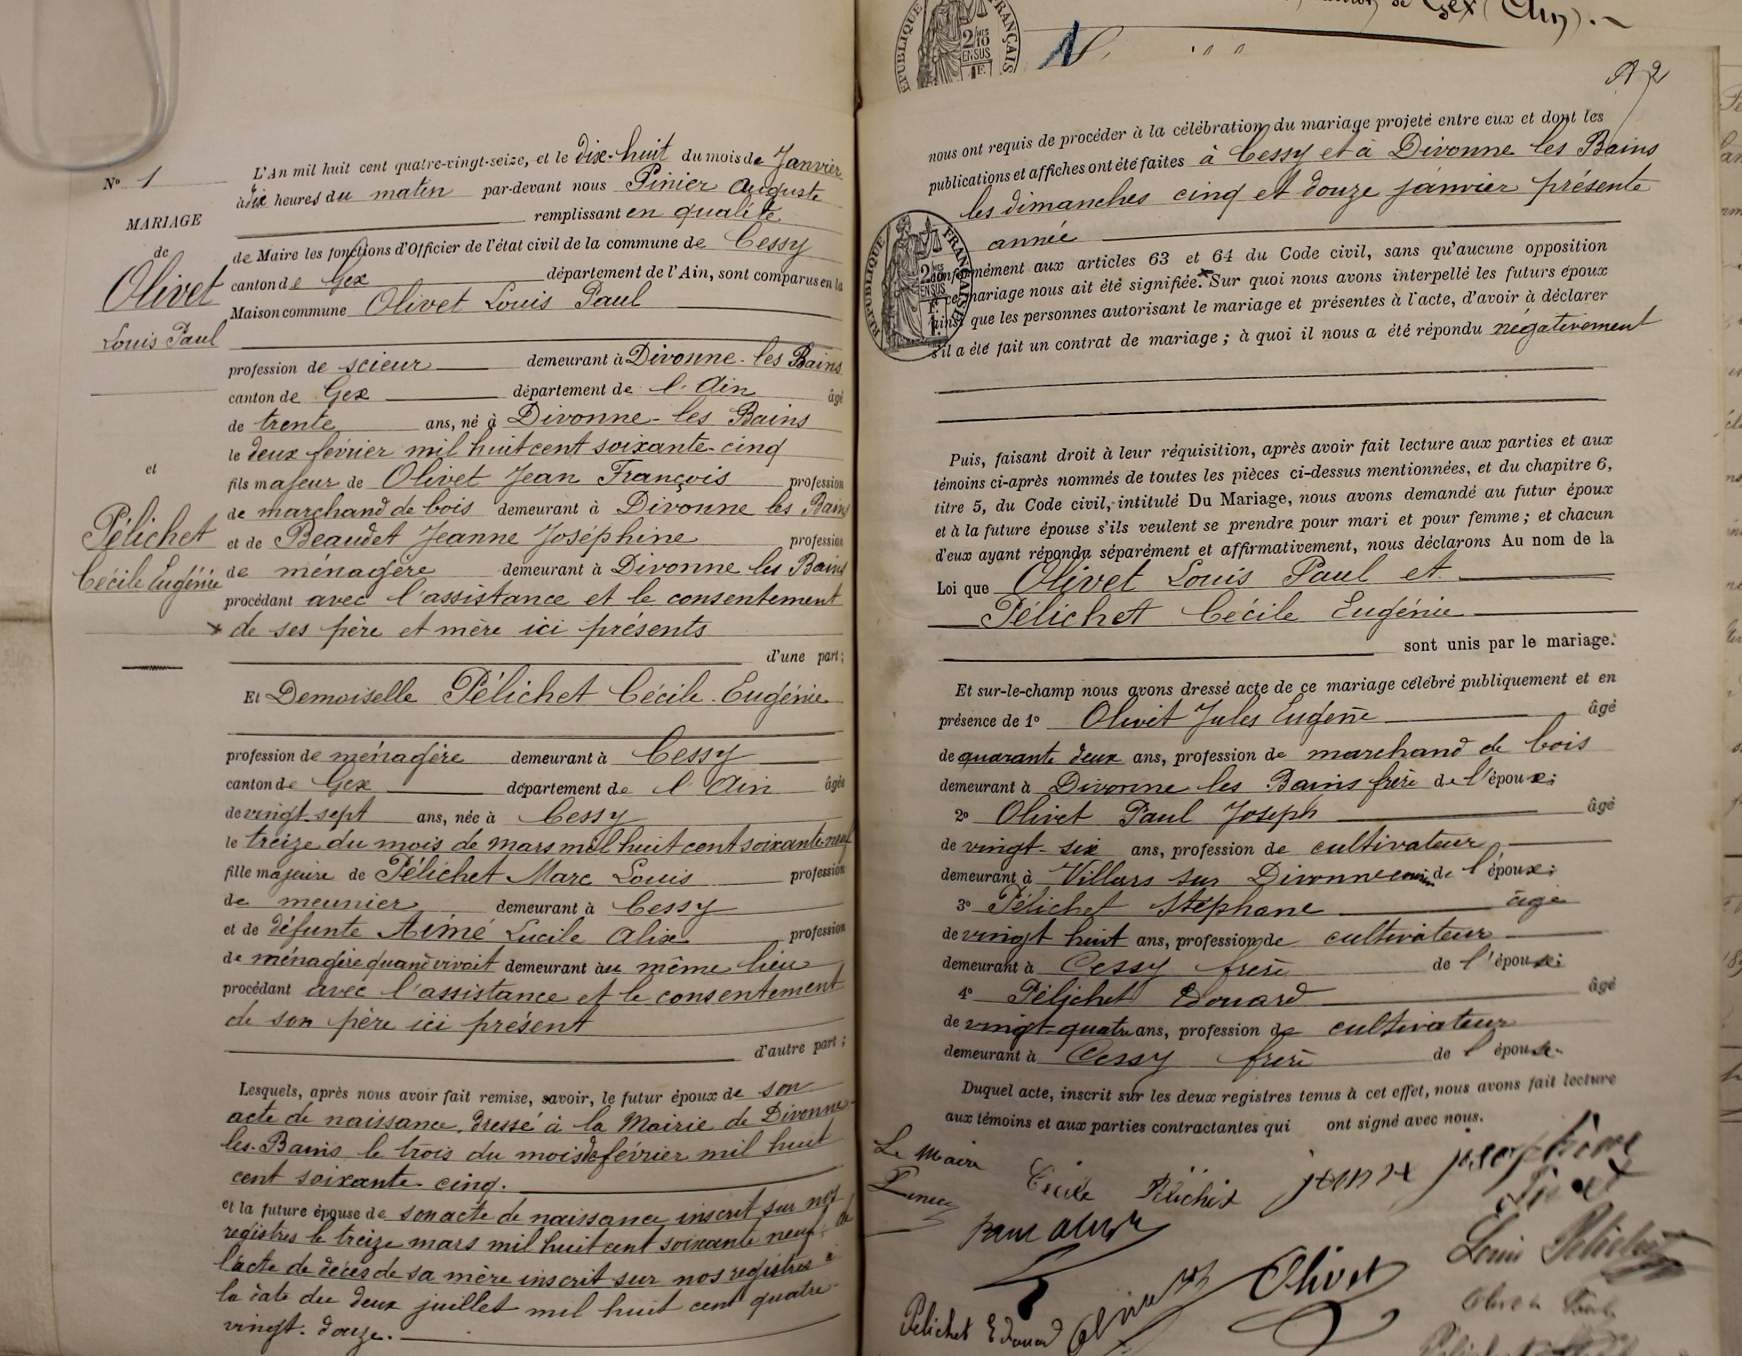 Nº 1
MARIAGE
de
Olivet
Louis Paul
et
Pélichet
Cécile Eugénie
L'An mil huit cent quatre-vingt-seize, et le dix-huit du mois de Janvier
à dix heures du matin par-devant nous Pinier Auguste
remplissant en qualité
de Maire les fonctions d'Officier de l'état civil de la commune de Cessy
canton de Gex département de l'Ain, sont comparus en la
Maison commune Olivet Louis Paul
profession de scieur demeurant à Divonne-les Bains
canton de Gex département de l'Ain âgé
de trente ans, né à Divonne-les Bains
le deux février mil huit cent soixante-cinq
fils majeur de Olivet Jean François profession
de marchand de bois demeurant à Divonne les Bains
et de Beaudet Jeanne Joséphine profession
de ménagère demeurant à Divonne les Bains
procédant avec l'assistance et le consentement
de ses père et mère ici présents
d'une part;
Et Demoiselle Pélichet Cécile Eugénie
profession de ménagère demeurant à Cessy
canton de Gex département de l'Ain âgée
de vingt-sept ans, née à Cessy
le treize du mois de mars mil huit cent soixante neuf
fille majeure de Pélichet Marc Louis profession
de meunier demeurant à Cessy
et de défunte Aimé Lucile Alix profession
de ménagère quand vivait demeurant au même lieu
procédant avec l'assistance et le consentement
de son père ici présent
d'autre part;
Lesquels, après nous avoir fait remise, savoir, le futur époux de son
acte de naissance, dressé à la Mairie de Divonne-
les-Bains le trois du mois de février mil huit
cent soixante-cinq.
et la future épouse de son acte de naissance inscrit sur nos
registres le treize mars mil huit cent soixante neuf, de
l'acte de décès de sa mère inscrit sur nos registres à
la date du deux juillet mil huit cent quatre-
vingt-douze.
de Gex (Ain).
RÉPUBLIQUE FRANÇAISE
2/10
EN SUS
1 F.
N° 2
nous ont requis de procéder à la célébration du mariage projeté entre eux et dont les
publications et affiches ont été faites à Cessy et à Divonne les Bains
les dimanches cinq et douze janvier présente
année
conformément aux articles 63 et 64 du Code civil, sans qu'aucune opposition
à ce mariage nous ait été signifiée. Sur quoi nous avons interpellé les futurs époux
ainsi que les personnes autorisant le mariage et présentes à l'acte, d'avoir à déclarer
s'il a été fait un contrat de mariage; à quoi il nous a été répondu négativement
RÉPUBLIQUE FRANÇAISE
2/10
EN SUS
Puis, faisant droit à leur réquisition, après avoir fait lecture aux parties et aux
témoins ci-après nommés de toutes les pièces ci-dessus mentionnées, et du chapitre 6,
titre 5, du Code civil, intitulé Du Mariage, nous avons demandé au futur époux
et à la future épouse s'ils veulent se prendre pour mari et pour femme; et chacun
d'eux ayant répondu séparément et affirmativement, nous déclarons Au nom de la
Loi que Olivet Louis Paul et
Pélichet Cécile Eugénie
sont unis par le mariage.
Et sur-le-champ nous avons dressé acte de ce mariage célébré publiquement et en
présence de 1º Olivet Jules Eugène âgé
de quarante deux ans, profession de marchand de bois
demeurant à Divonne les Bains frère de l'époux;
2º Olivet Paul Joseph âgé
de vingt-six ans, profession de cultivateur
demeurant à Villars sur Divonne de l'époux;
3º Pélichet Stéphane âgé
de vingt huit ans, profession de cultivateur
demeurant à Cessy frère de l'épouse;
4º Pélichet Edouard âgé
de vingt-quatre ans, profession de cultivateur
demeurant à Cessy frère de l'épouse.
Duquel acte, inscrit sur les deux registres tenus à cet effet, nous avons fait lecture
aux témoins et aux parties contractantes qui ont signé avec nous.
Le Maire
Pinier
Cécile Pélichet
Jeanne Josephine
Olivet
Louis Pélichet
Pélichet Edouard